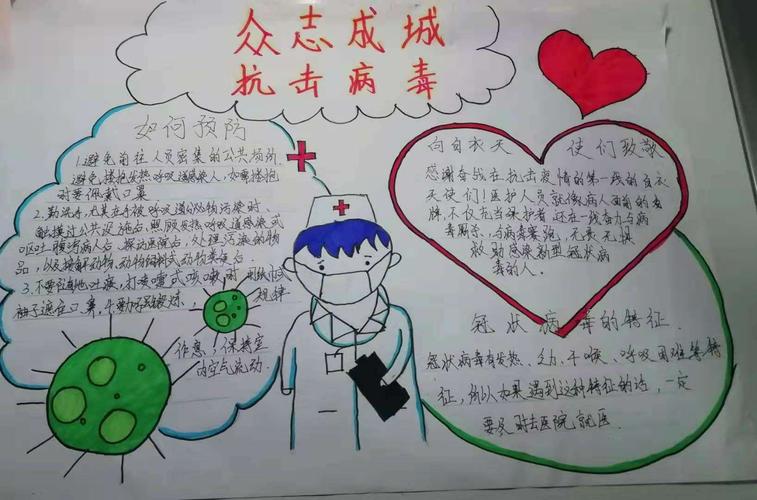 众志成城
抗击病毒
如何预防
1.避免自在人员密集的公共场所,
避免接抱发热呼吸道感染人,如需接抱
时要佩戴口罩
2.勤洗手,尤其在手被呼吸道分泌物污染时
触摸过公共设施后,照顾发热呼吸道感染或
呕吐腹泻病人后,探访医院后,处理污染的物
品,以及接触动物,动物饲料或动物粪便后.
3.不要随地吐痰,打喷嚏或咳嗽时
规律
作息,保持室
内空气流动.
向白衣天使们致敬
感谢奋战在抗击疫情的第一线的白衣
天使们!医护人员就像病人面前的盾
牌,不仅充当保护者还在一线奋力与病
毒厮杀,与病毒赛跑,无畏无惧
救助感染新型冠状病
毒的人.
冠状病毒的特征.
冠状病毒有发热、乏力、干咳、呼吸困难等特
征,所以如果遇到这种特征的话,一定
要及时去医院就医.